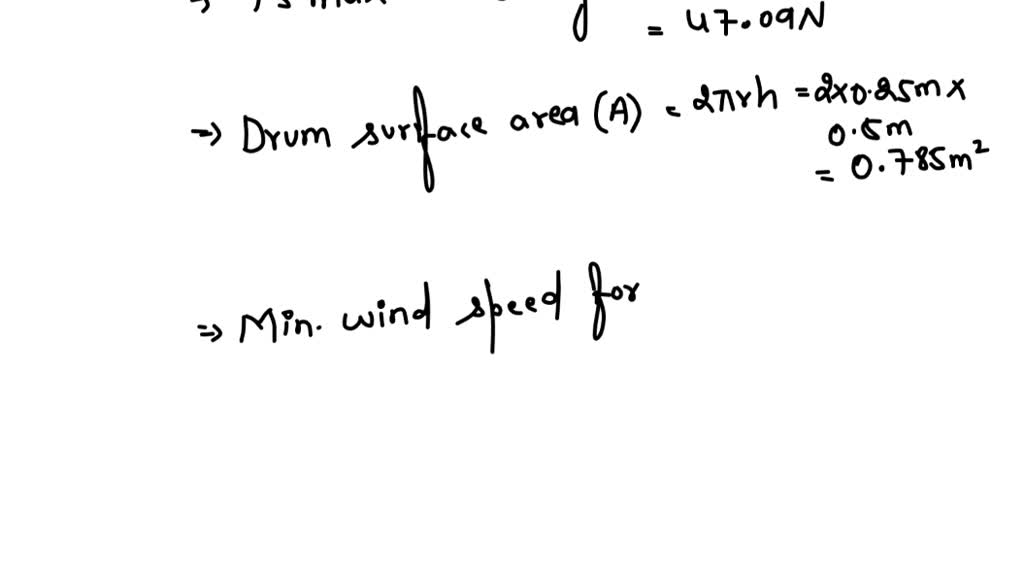 = 47.09N
⇒ Drum surface area (A) = 2πrh = 2×0.25m ×
0.5m
= 0.785m²
⇒ Min. wind speed for